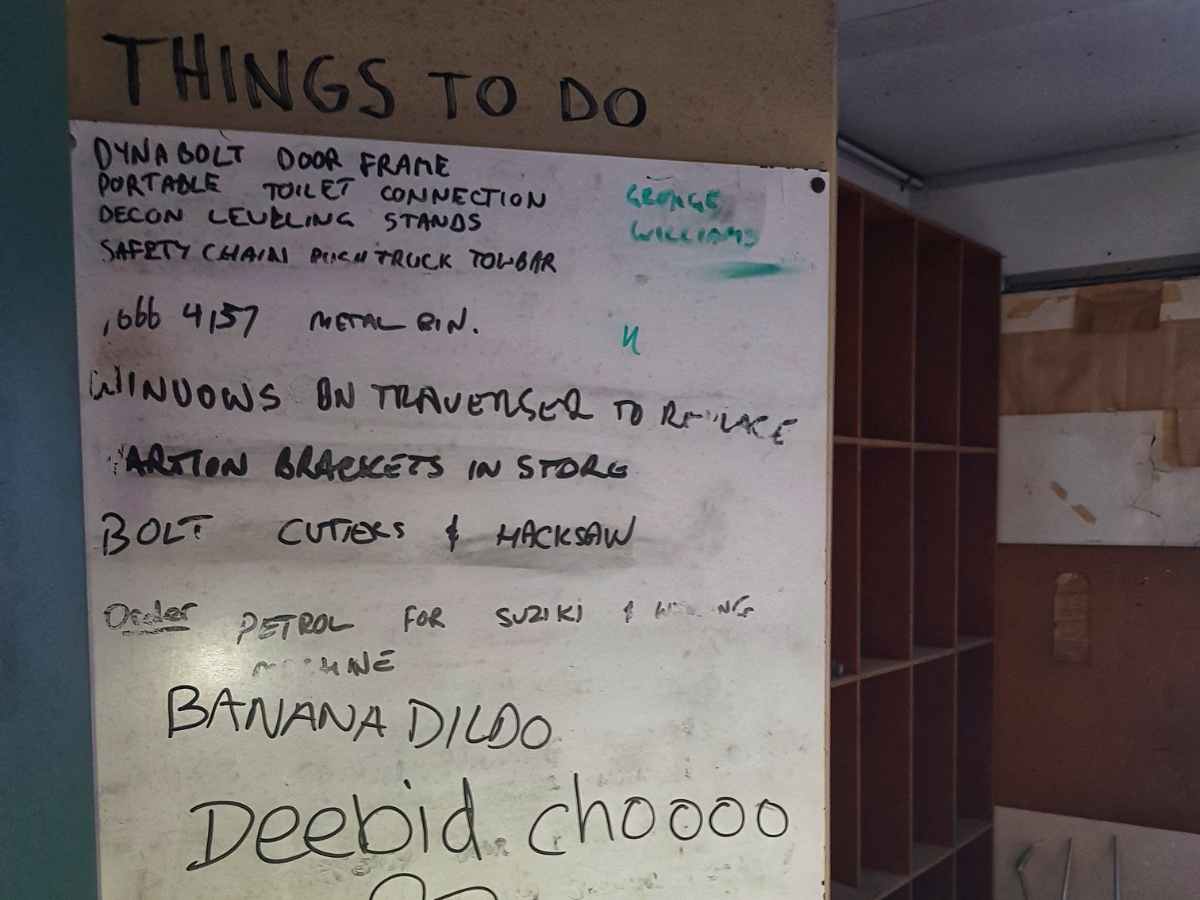 THINGS TO DO
DYNABOLT DOOR FRAME
PORTABLE TOILET CONNECTION
DECON LEVELING STANDS
SAFETY CHAIN TRUCK TOWBAR
GEORGE
WILLIAMS
,666 4,157 METAL BIN.
WINDOWS ON TRAVERSER TO REPLACE
BRACKETS IN STORE
BOLT CUTTERS & HACKSAW
Order PETROL FOR SUZIKI &
MACHINE
BANANA DILDO
Deebid. choooo